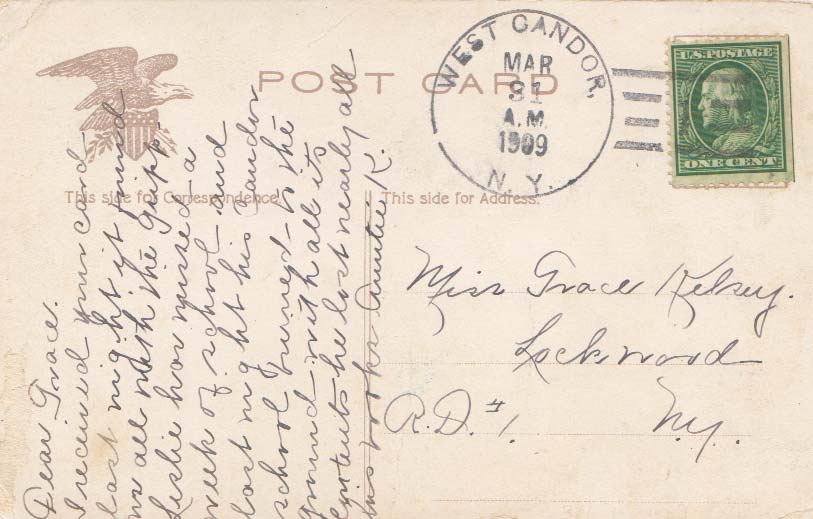 POST CARD
This side for Correspondence.
This side for Address.
WEST CANDOR,
MAR
31
A.M.
1909
N.Y.
U.S. POSTAGE
ONE CENT
Dear Grace.
I received your card
last night it found
us all with the Gripp
Leslie has missed a
week of school and
last night his Candor
school burned to the
ground with all its
contents he lost nearly all
his books Auntie K.
Miss Grace Kelsey.
Lockwood
R.D. #1. N.Y.